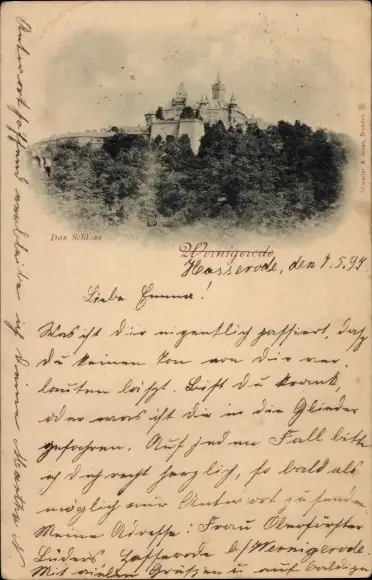 Das Schloss
Wernigerode
Hasserode, den 7.5.99
Liebe Emma!
Was ist dir eigentlich passiert, daß
Du keinen Ton von Dir ver
lauten läßt. Bist du krank,
oder was ist dir in die Glieder
gefahren. Auf jeden Fall bitte
ich dich recht herzlich, so bald als
möglich mir Antwort zu senden.
Meine Adresse: Frau Oberförster
Lüders Hasserode b/Wernigerode.
Mit vielen Grüßen u auf baldige
Antwort hoffend verbleibe ich Deine Martha